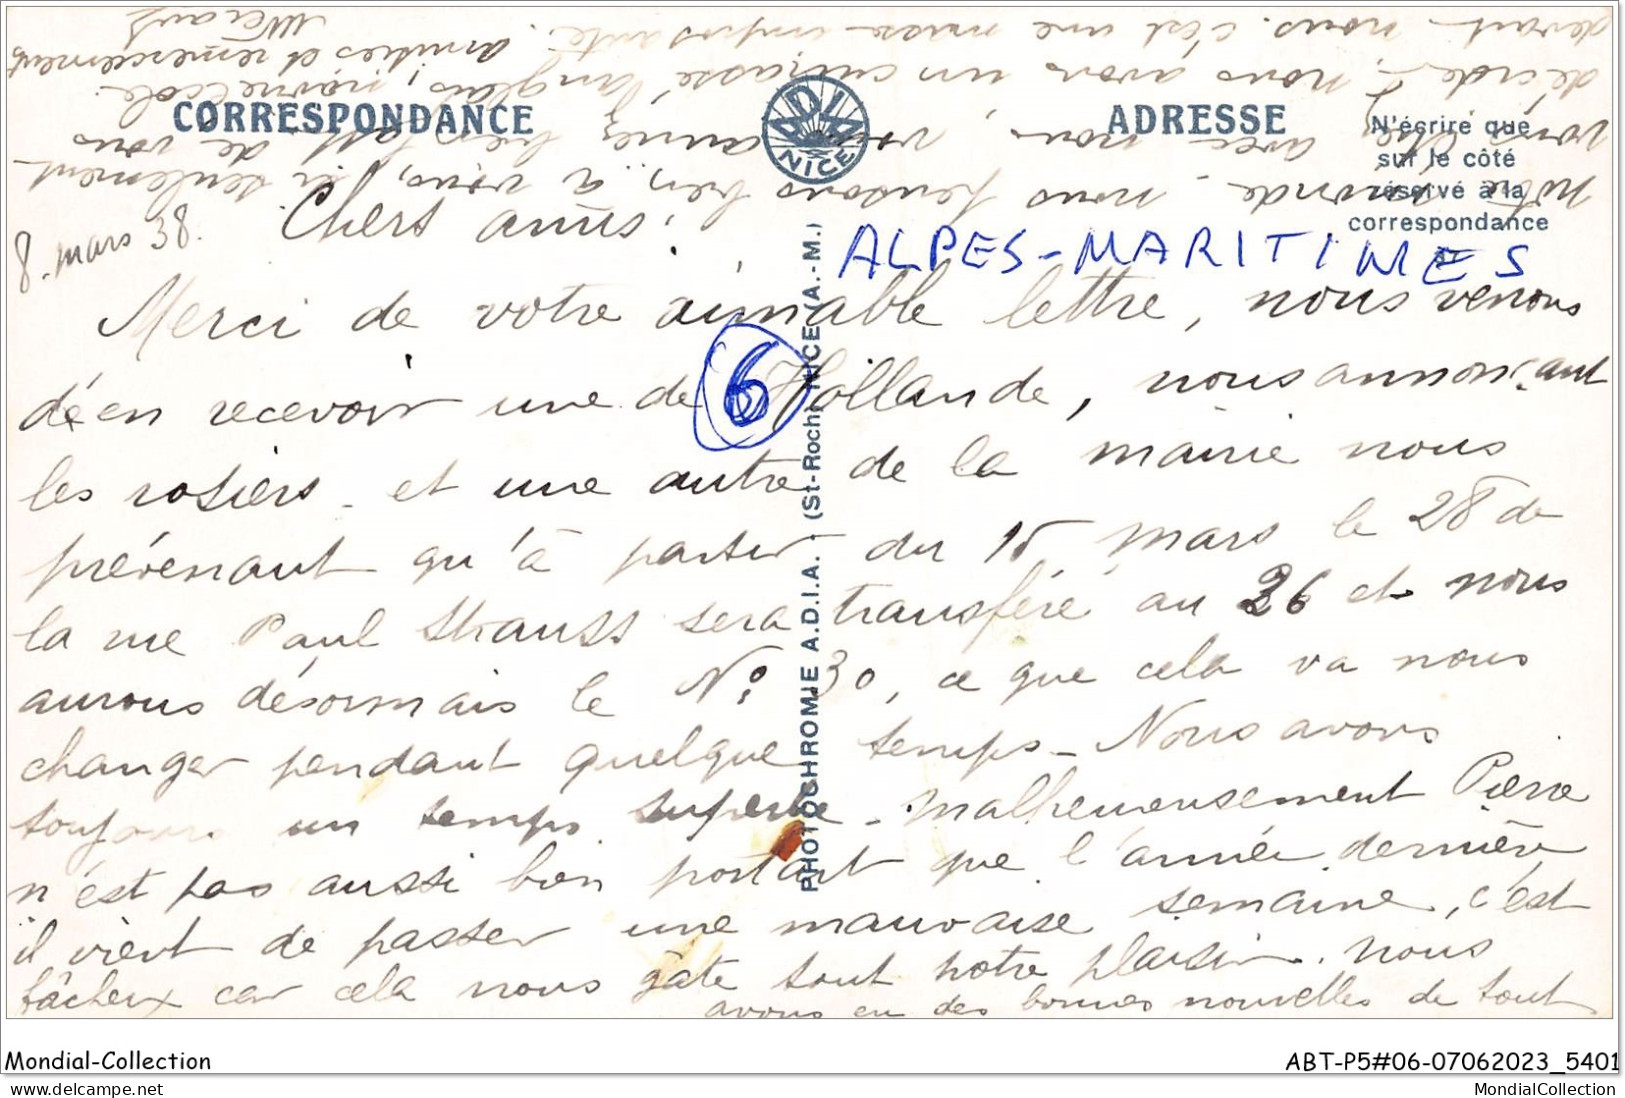 CORRESPONDANCE
ADRESSE
ADIA
NICE
N'écrire que
sur le côté
réservé à la
correspondance
ALPES-MARITIMES
6
PHOTOCHROMIE A.D.I.A. - (St-Roch) NICE (A.-M.)
8. mars 38.
Chers amis,
Merci de votre aimable lettre, nous venons
d'en recevoir une de Hollande, nous annonçant
les rosiers - et une autre de la mairie nous
prévenant qu'à partir du 15 mars le 28 de
la rue Paul Strauss sera transféré au 26 et nous
aurons désormais le No 30, ce que cela va nous
changer pendant quelque temps - Nous avons
toujours un temps superbe - malheureusement Pierre
n'est pas aussi bien portant que l'année dernière
il vient de passer une mauvaise semaine, c'est
fâcheux car cela nous gâte tout notre plaisir. nous
avons eu des bonnes nouvelles de tout
notre monde - nous pensons bien à vous, si seulement
vous étiez avec nous, vous auriez bientôt de vous
décider, nous avons un cuirassé anglais, navire école
devant nous. c'est une masse imposante. amitiés et remerciements
Mondial-Collection
ABT-P5#06-07062023_5401
© Mondial-Collection
MondialCollection